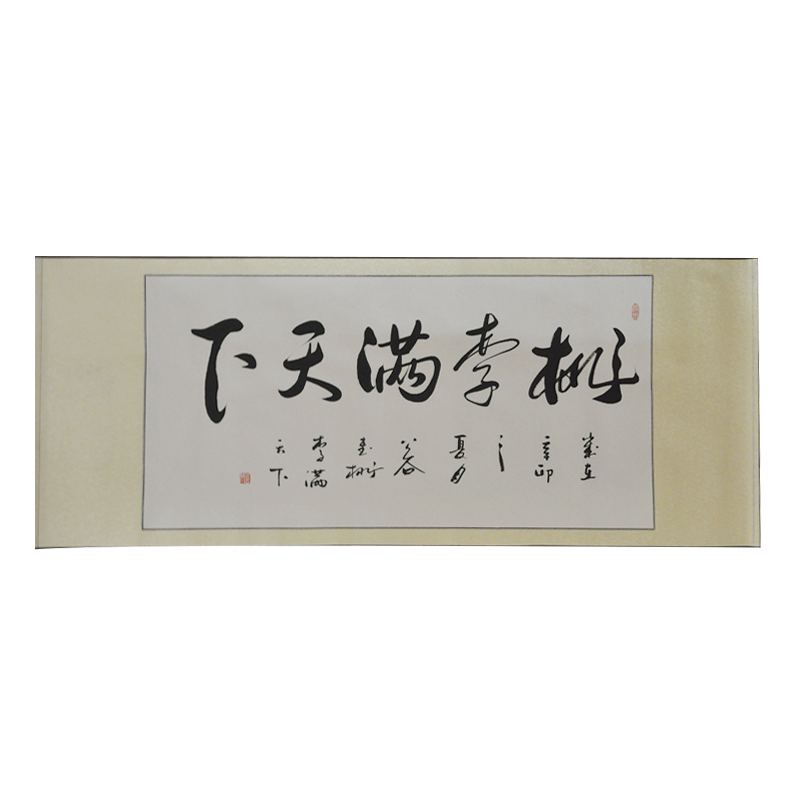 桃李滿天下
歲在
辛卯
之
夏月
書桃
李滿
天下